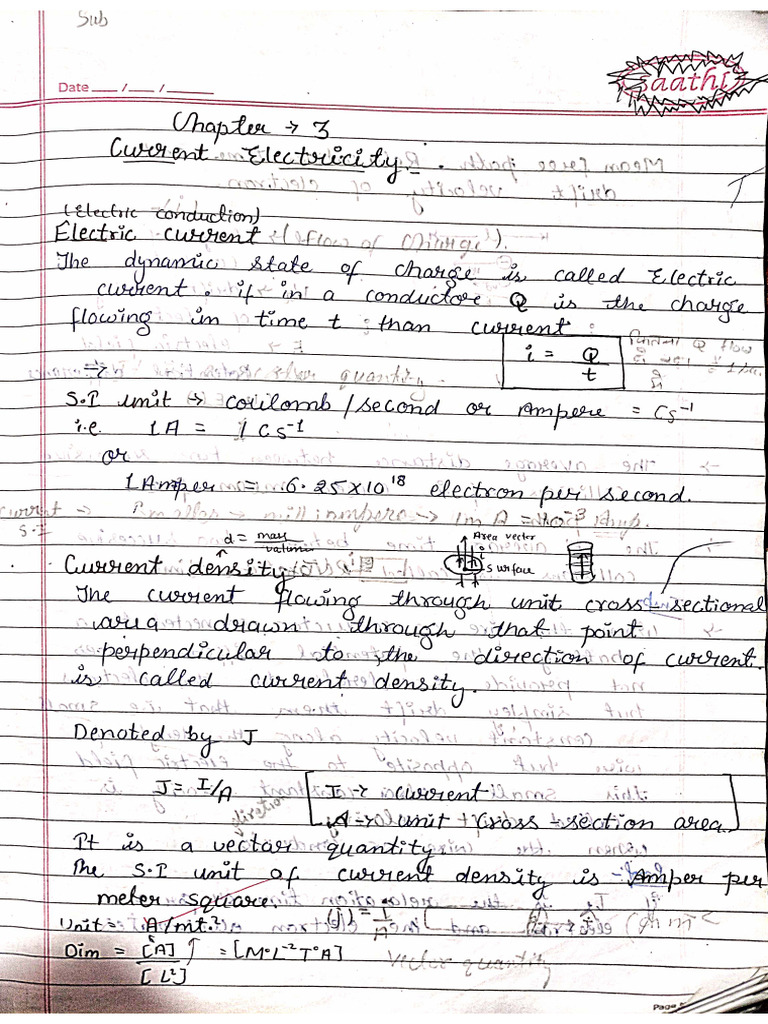 Sub
Date ___ / ___ / ______
Saathi
Chapter → 3
Current Electricity.
(Electric conduction)
Electric current → (Flow of Charge).
The dynamic state of charge is called Electric
current. if in a conductore Q is the charge
flowing in time t: than current:
i = Q/t
S.I unit → coulomb/second or Ampere = Cs⁻¹
i.e. 1A = 1 Cs⁻¹
or
1 Amper = 6.25x10¹⁸ electron per second.
d = mass/volume
Area vector
i
surface
Current density
The current flowing through unit cross-sectional
area drawn through that point
perpendicular to the direction of current.
is called current density.
Denoted by J
J = I/A [I → current
A → unit cross-section area]
direction
It is a vectar quantity.
The S.I unit of current density is - Amper per
meter square.
Unit = A/mt.²
Dim = [A]/[L²] = [M⁰L⁻²T⁰A]
Vector quantity
Page